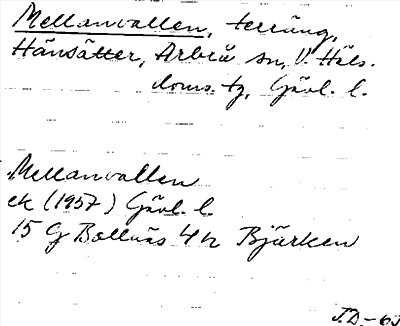 Mellanvallen, terräng,
Hänsätter, Arbrå sn, V. Häls.
doms. tg, Gävl. l.
Mellanvallen
ek (1957) Gävl. l.
15 G Bollnäs 4 h Bjärken
J.D.-63